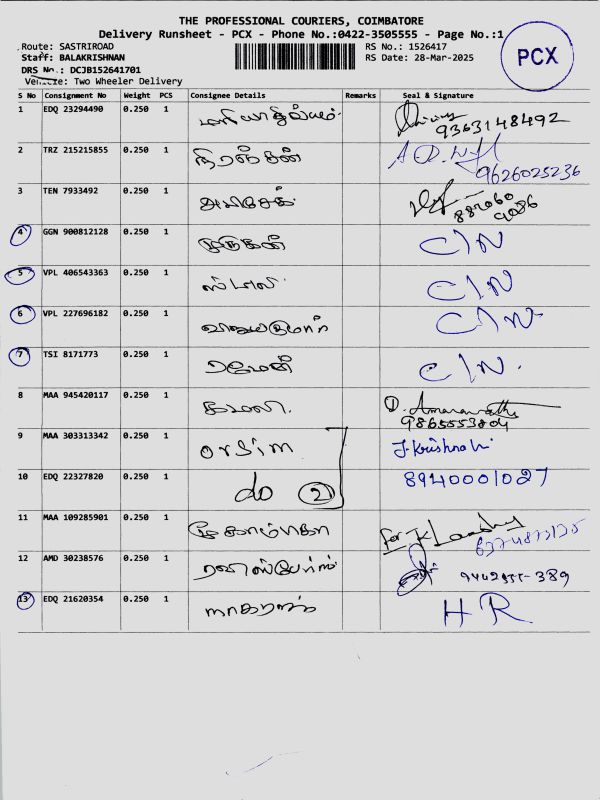 THE PROFESSIONAL COURIERS, COIMBATORE
Delivery Runsheet - PCX - Phone No.:0422-3505555 - Page No.:1
Route: SASTRIROAD RS No.: 1526417
Staff: BALAKRISHNAN RS Date: 28-Mar-2025
DRS No.: DCJB152641701
Vehicle: Two Wheeler Delivery
PCX
S No Consignment No Weight PCS Consignee Details Remarks Seal & Signature
1 EDQ 23294490 0.250 1 9363148492
2 TRZ 215215855 0.250 1 நிரஞ்சன் 9626025236
3 TEN 7933492 0.250 1 அபிஷேக்
4 GGN 900812128 0.250 1 முருகன் C/N
5 VPL 406543363 0.250 1 C/N
6 VPL 227696182 0.250 1 C/N
7 TSI 8171773 0.250 1 ரமேஷ் C/N.
8 MAA 945420117 0.250 1 கமலா. Amaravathi
9865553804
9 MAA 303313342 0.250 1 J. Krishnah
10 EDQ 22327820 0.250 1 do 2 8940001027
11 MAA 109285901 0.250 1 for
12 AMD 30238576 0.250 1
13 EDQ 21620354 0.250 1 நாகராஜ் HR